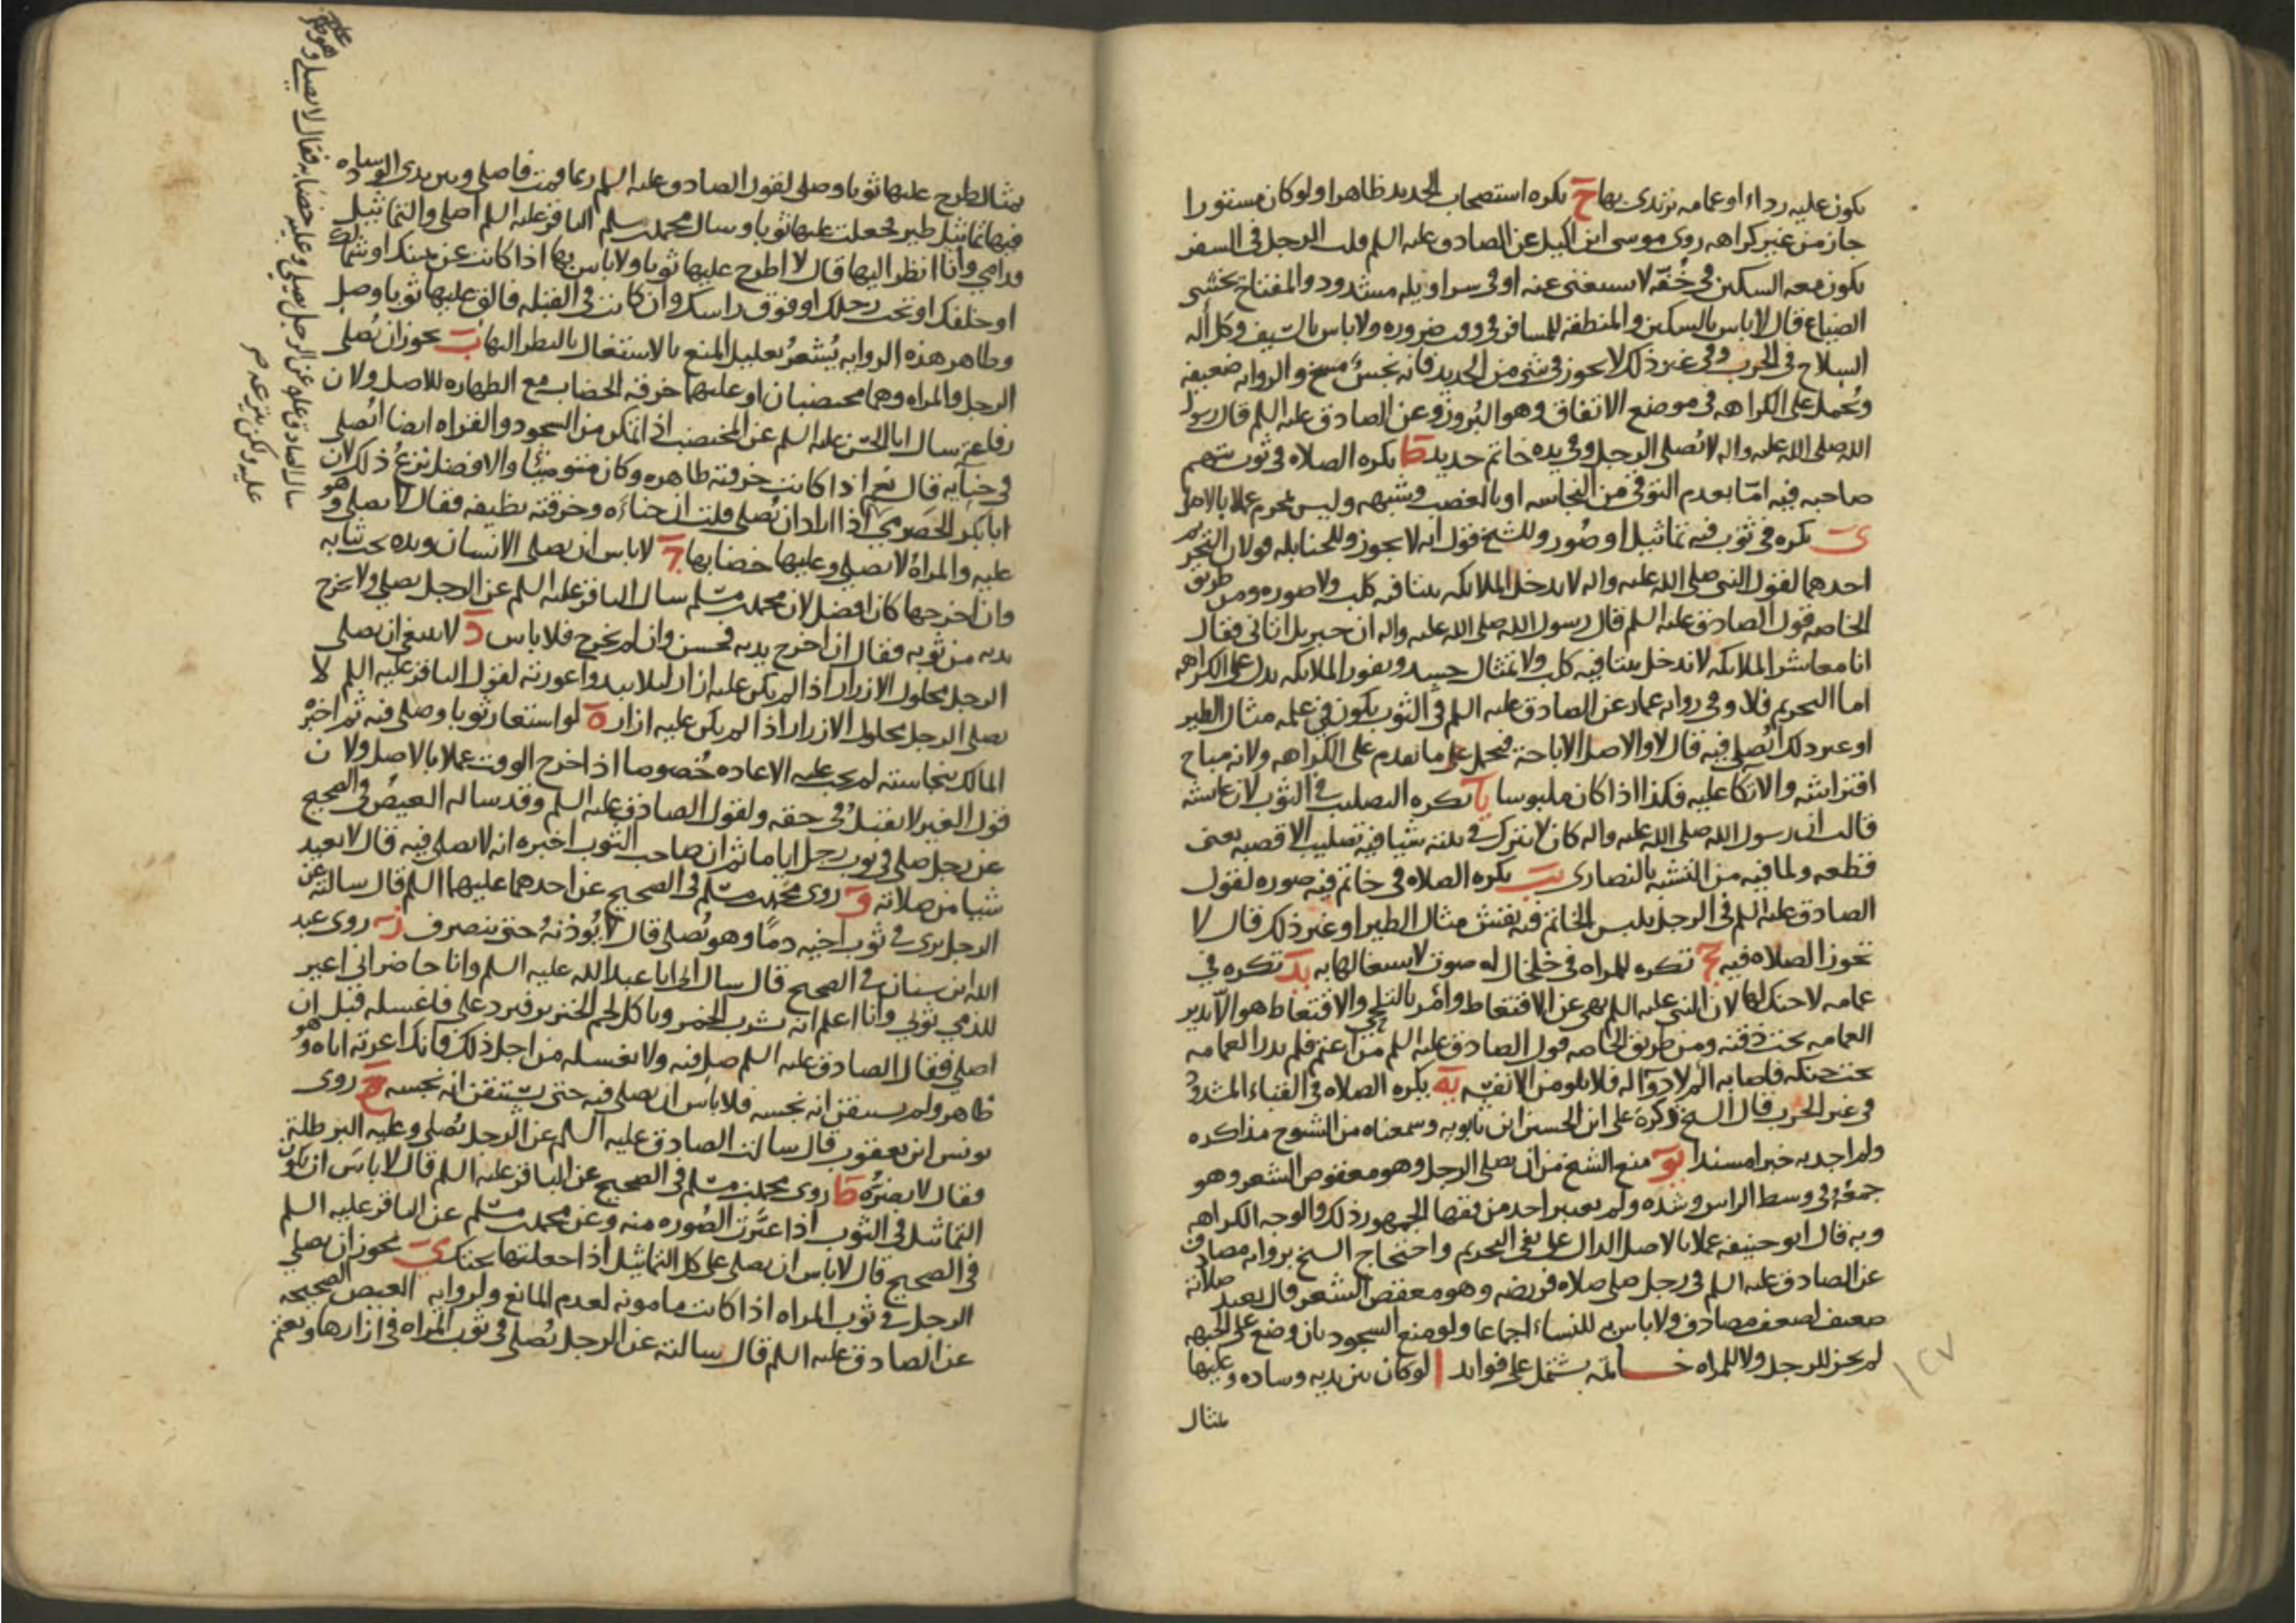 يكون عليه رداء او عمامه يرتدى بها ح يكره استصحاب الحديد ظاهرا ولو كان مستورا
جاز من غير كراهه روى موسى ابن اكيل عن الصادق عليه السلم قلت الرجل فى السفر
يكون معه السكين فى خفه لا يستغنى عنه او فى سراويله مشدود والمفتاح يخشى
الضياع قال لا باس بالسكين والمنطقه للمسافر فى وقت ضروره ولا باس بالسيف وكل اله
السلاح فى الحرب وفى غير ذلك لا يجوز فى شى من الحديد فانه نجس مسخ والروايه ضعيفه
وتحمل على الكراهه فى موضع الاتفاق وهو البروز وعن الصادق عليه السلم قال رسول
الله صلى الله عليه واله لا يصلى الرجل وفى يده خاتم حديد ط يكره الصلاه فى ثوب يتهم
صاحبه فيه اما بعدم التوقى من النجاسه او بالغصب وشبهه وليس بمحرم عملا بالاصل
ى يكره فى ثوب فيه تماثيل او صور وللشيخ قول انه لا يجوز وللحنابله قولان التحريم
احدهما لقول النبى صلى الله عليه واله لا يدخل الملائكه بيتا فيه كلب ولا صوره ومن طريق
الخاصه قول الصادق عليه السلم قال رسول الله صلى الله عليه واله ان جبريل اتانى فقال
انا معاشر الملائكه لا ندخل بيتا فيه كلب ولا تمثال جسد ونفور الملائكه يدل على الكراهه
اما التحريم فلا وفى روايه عمار عن الصادق عليه السلم فى الثوب يكون فى علمه مثال الطير
او غير ذلك ايصلى فيه قال لا والاصل الاباحة فيحمل على ما تقدم على الكراهه ولانه مباح
افتراشه والاتكا عليه فكذا اذا كان ملبوسا يا يكره التصليب فى الثوب لان عايشه
قالت ان رسول الله صلى الله عليه واله كان لا يترك فى بيته شيا فيه تصليب الا قضبه يعنى
قطعه ولما فيه من التشبه بالنصارى يب يكره الصلاه فى خاتم فيه صوره لقول
الصادق عليه السلم فى الرجل يلبس الخاتم فيه نقش مثال الطير او غير ذلك قال لا
تجوز الصلاه فيه يج تكره للمراه فى خلخال له صوت لاشتغالها به يد تكره فى
عمامه لا حنك لها لان النبى عليه السلم نهى عن الاقتعاط وامر بالتلحى والاقتعاط هو الا يدير
العمامه تحت ذقنه ومن طريق الخاصه قول الصادق عليه السلم من اعتم فلم يدر العمامه
تحت حنكه فاصابه الم لا دوا له فلا يلومن الا نفسه يه يكره الصلاه فى القباء المشدود
فى غير الحرب قال الشيخ ذكره على ابن الحسين ابن بابويه وسمعناه من الشيوخ مذاكره
ولم اجد به خبرا مسندا يو منع الشيخ من ان يصلى الرجل وهو معقوص الشعر وهو
جمعه فى وسط الراس وشده ولم يعتبر احد من فقها الجمهور ذلك والوجه الكراهه
وبه قال ابو حنيفه عملا بالاصل الدال على نفى التحريم واحتجاج الشيخ بروايه مصادف
عن الصادق عليه السلم فى رجل صلى صلاه فريضه وهو معقص الشعر قال يعيد صلاته
ضعيف لضعف مصادف ولا باس به للنساء اجماعا ولو منع السجود بان وضع على الجبهه
لم يجز للرجل ولا للمراه خاتمه يشتمل على فوايد ا لو كان بين يديه وساده وعليها
مثال
مثال طرح عليها ثوبا وصلى لقول الصادق عليه السلم ربما قمت فاصلى وبين يدى الوساده
فيها تماثيل طير فجعلت عليها ثوبا وسال محمد بن مسلم الباقر عليه السلم اصلى والتماثيل
قدامى وانا انظر اليها قال لا اطرح عليها ثوبا ولا باس بها اذا كانت عن يمينك او شمالك
او خلفك او تحت رجلك او فوق راسك وان كانت فى القبله فالق عليها ثوبا وصل
وظاهر هذه الروايه يشعر بتعليل المنع بالاشتغال بالنظر اليها ب يجوز ان يصلى
الرجل والمراه وهما مختضبان او عليهما خرقه الخضاب مع الطهاره للاصل ولان
رفاعة سال ابا الحسن عليه السلم عن المختضب اذا تمكن من السجود والقراه ايضا ايصلى
فى حنايه قال نعم اذا كانت خرقته طاهره وكان متوضيئا والافضل نزع ذلك لان
ابا بكر الحضرمى اذا اراد ان يصلى قلت ان حناءه وخرقته نظيفه فقال لا يصلى وهو
عليه والمراة لا تصلى وعليها خضابها ج لا باس ان يصلى الانسان ويده تحت ثيابه
وان اخرجها كان افضل لان محمد بن مسلم سال الباقر عليه السلم عن الرجل يصلى ولا يخرج
يديه من ثوبه فقال ان اخرج يديه فحسن وان لم يخرج فلا باس د لا ينبغى ان يصلى
الرجل محلول الازرار اذا لم يكن عليه ازار ليلا يبدوا عورته لقول الباقر عليه السلم لا
يصلى الرجل محلول الازرار اذا لم يكن عليه ازار ه لو استعار ثوبا وصلى فيه ثم اخبره
المالك بنجاسته لم يجب عليه الاعاده خصوصا اذا خرج الوقت عملا بالاصل ولان
قول الغير لا يقبل فى حقه ولقول الصادق عليه السلم وقد ساله العيص فى الصحيح
عن رجل صلى فى ثوب رجل اياما ثم ان صاحب الثوب اخبره انه لا يصلى فيه قال لا يعيد
شيا من صلاته و روى محمد بن مسلم فى الصحيح عن احدهما عليهما السلم قال سالته عن
الرجل يرى فى ثوب اخيه دما وهو يصلى قال لا يوذنه حتى ينصرف ز روى عبد
الله ابن سنان فى الصحيح قال سال ابى ابا عبد الله عليه السلم وانا حاضر انى اعير
للذمى ثوبى وانا اعلم انه يشرب الخمر وياكل لحم الخنزير فيرد على فاغسله قبل ان
اصلى فقال الصادق عليه السلم صل فيه ولا تغسله من اجل ذلك فانك اعرته اياه وهو
طاهر ولم يستيقن انه نجسه فلا باس ان يصلى فيه حتى يستيقن انه نجسه ح روى
يونس ابن يعقوب قال سالت الصادق عليه السلم عن الرجل يصلى وعليه البرطلة
فقال لا يضره ط روى محمد بن مسلم فى الصحيح عن الباقر عليه السلم قال لا باس ان يكون
التماثيل فى الثوب اذا غيرت الصوره منه وعن محمد بن مسلم عن الباقر عليه السلم
فى الصحيح قال لا باس ان يصلى على كل التماثيل اذا جعلتها تحتك ى يجوز ان يصلى
الرجل فى ثوب المراه اذا كانت مامونه لعدم المانع ولروايه العيص الصحيحه
عن الصادق عليه السلم قال سالته عن الرجل يصلى فى ثوب المراه فى ازارها ويعتم
سال الصادق عن الرجل يصلى وعليه خضابه فقال لا يصلى وهو عليه
عليه ولكن ينزعه
١٢٧